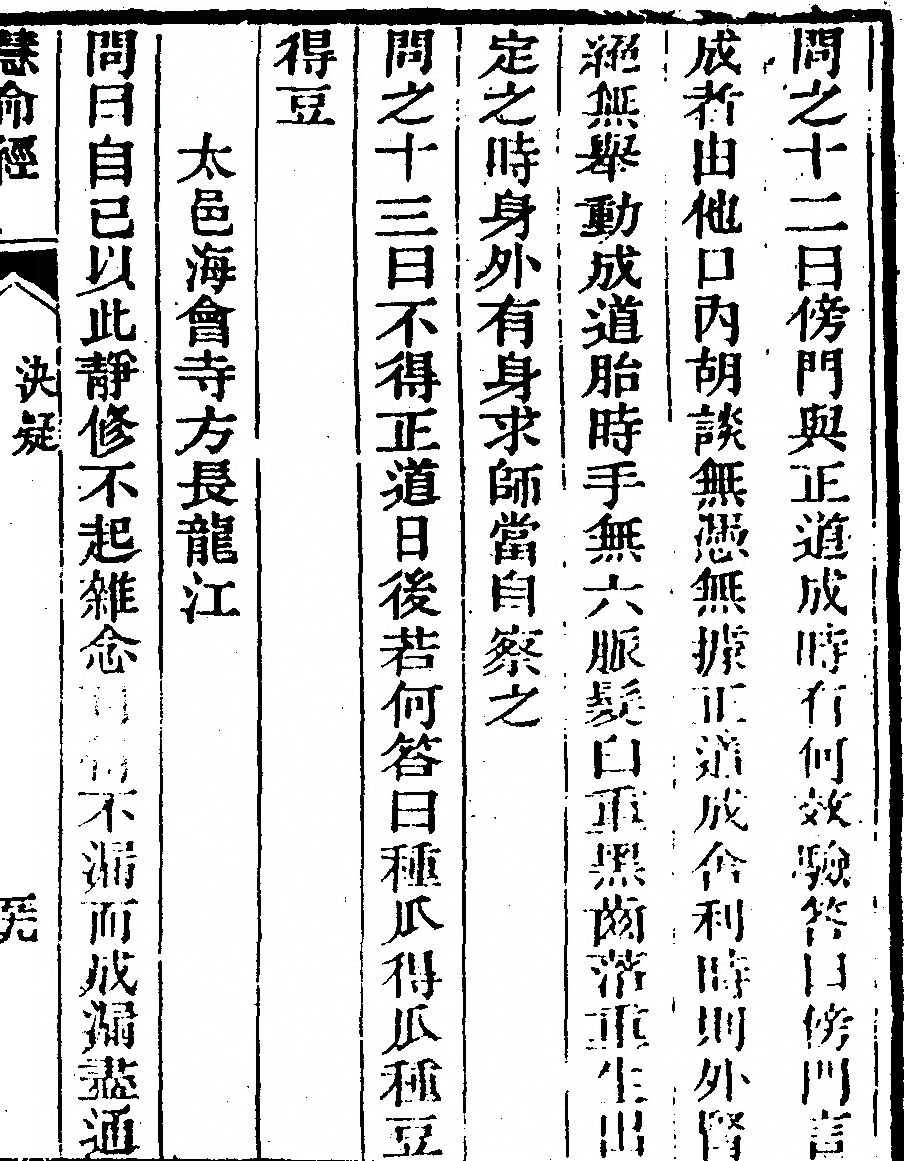 問之十二曰傍門與正道成時有何效驗答曰傍門言
成者由他口內胡談無憑無據正道成舍利時則外腎
絕無舉動成道胎時手無六脈髮白重黑齒落重生出
定之時身外有身求師當自察之
問之十三曰不得正道日後若何答曰種瓜得瓜種豆
得豆
太邑海會寺方長龍江
問曰自己以此靜修不起雜念不漏而成漏盡通
慧命經
決疑